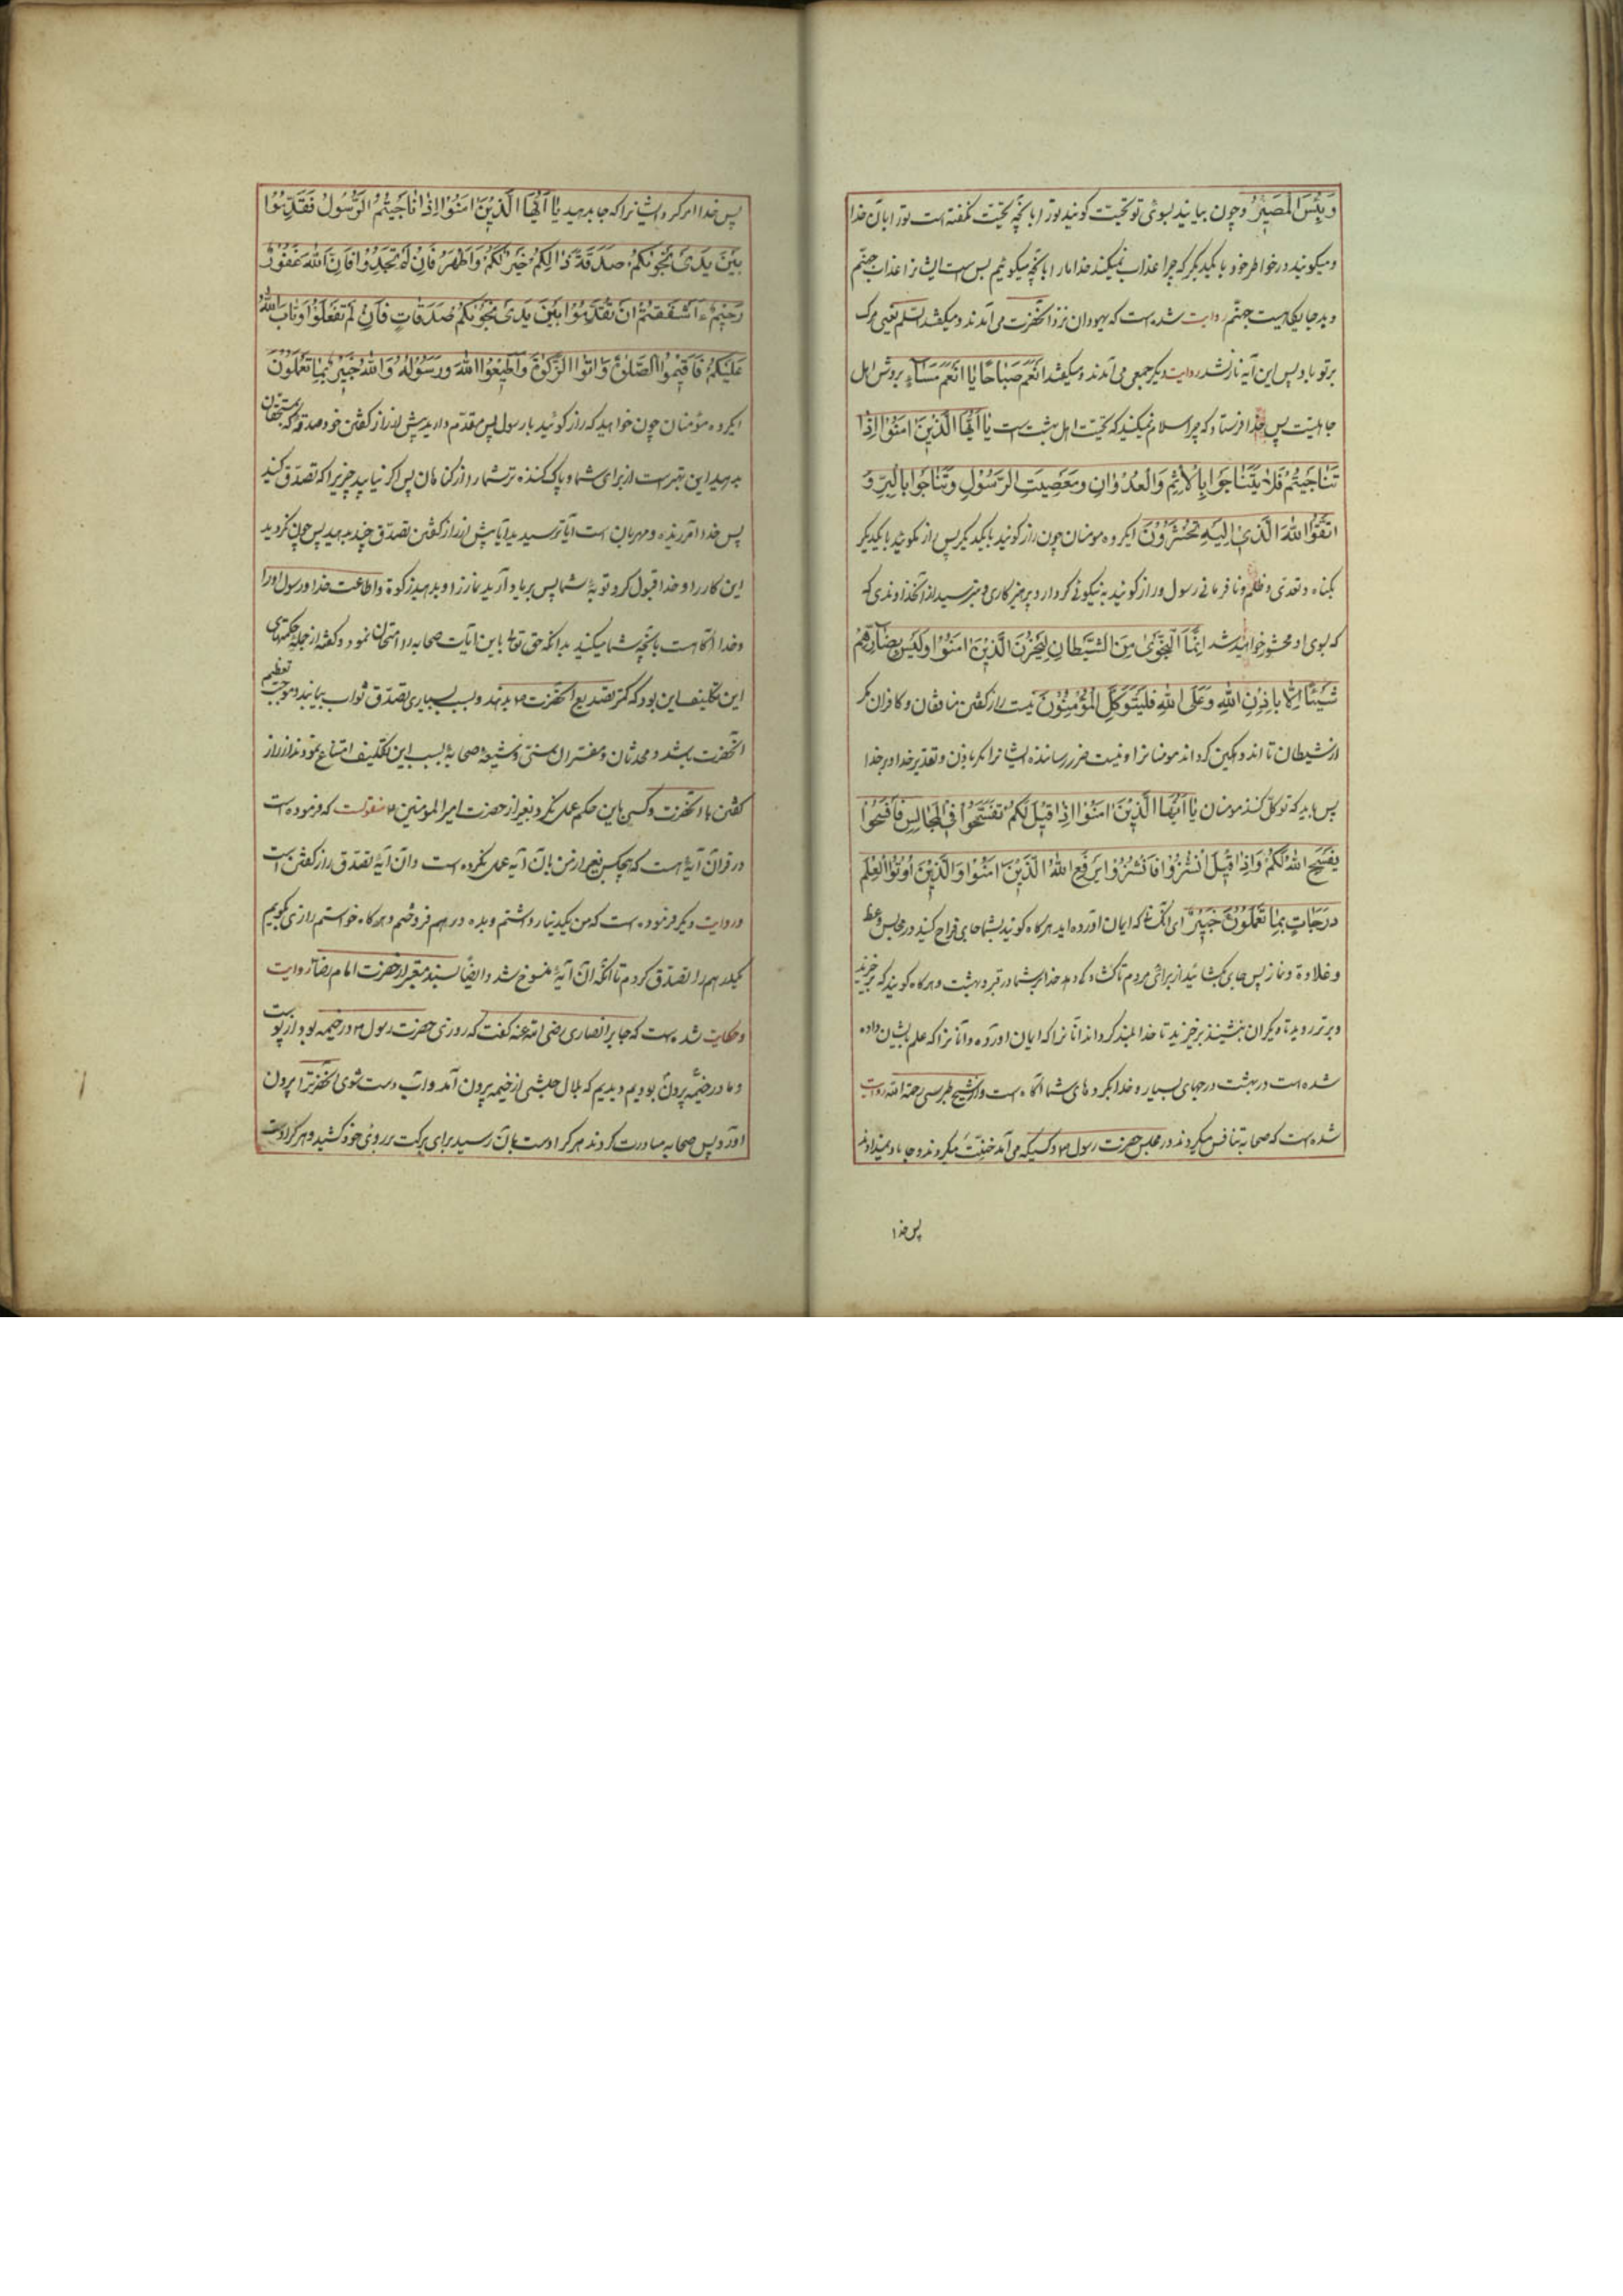 وَبِئْسَ الْمَصِیرُ وچون بیایند بسوی تو تحیّت کویند تورا بانچه تحیّت نکفته است تورا بآن خدا
ومیکویند در خواطر خود با یکدیکر که چرا عذاب نمیکند خدا مارا بانچه میکوئیم بس است ایشانرا عذاب جهنّم
وبد جایکاهیست جهنّم روایت شده است که یهودان نزد انحضرت می آمدند ومیکفتند السّام یعنی مرک
برتو باد پس این آیه نازلشد روایت دیکر جمعی می آمدند ومیکفتند انعم صباحًا یا انعم مساءً بروش اهل
جاهلیت پس خدا فرستاد که چرا سلام نمیکنید که تحیّت اهل بهشت است یَا اَیُّهَا الَّذِینَ امَنُوا اِذَا
تَنَاجَیْتُمْ فَلَا یَتَنَاجَوْا بِالْاِثْمِ وَالْعُدْوَانِ وَمَعْصِیَتِ الرَّسُولِ وَتَنَاجَوْا بِالْبِرِّ وَ
اتَّقُوا اللهَ الَّذِی اِلَیْهِ تُحْشَرُونَ ایکروه مومنان چون راز کوئید با یکدیکر پس راز نکوئید با یکدیکر
بکناه وتعدی وظلم ونافرمانی رسول وراز کوئید به نیکوئی کردار وپرهیزکاری وبترسید از انخداوندی که
که بسوی او محشور خواهید شد اِنَّمَا النَّجْوَی مِنَ الشَّیْطَانِ لِیَحْزُنَ الَّذِینَ امَنُوا وَلَیْسَ بِضَارِّهِمْ
شَیْئًا اِلَّا بِاِذْنِ اللهِ وَعَلَی اللهِ فَلْیَتَوَکَّلِ الْمُؤْمِنُونَ نیست راز کفتن منافقان وکافران مکر
از شیطان تا اندوهکین کرداند مومنانرا ونیست ضرر رساننده ایشانرا مکر باذن وتقدیر خدا وبر خدا
پس باید که توکّل کنند مومنان یَا اَیُّهَا الَّذِینَ امَنُوا اِذَا قِیلَ لَکُمْ تَفَسَّحُوا فِی الْمَجَالِسِ فَافْسَحُوا
یَفْسَحِ اللهُ لَکُمْ وَاِذَا قِیلَ انْشُزُوا فَانْشُزُوا یَرْفَعِ اللهُ الَّذِینَ امَنُوا وَالَّذِینَ اُوتُوا الْعِلْمَ
دَرَجَاتٍ بِمَا تَعْمَلُونَ خَبِیرٌ ای انکسانی که ایمان آورده اید هرکاه کویند بشما جای فراخ کنید در مجالس وعظ
ونماز پس جای بکشائید از برای مردم تا کشادکی دهد خدا برشما در قبر وبهشت وهرکاه کویند که برخیزید
وبرتر روید تا دیکران بنشینند برخیزید تا خدا بلند کرداند آنانرا که ایمان آورده وآنانرا که علم بایشان داده
شده است در بهشت درجهای بسیار وخدا بکردهای شما آکاه است وازشیخ طبرسی رحمة الله روایت
شده است که صحابه تنافس میکردند در مجلس حضرت رسول ص وکسیکه می آمد میکردند وجا باو نمیدادند
پس خدا
پس خدا امر کرد ایشانرا که جا بدهید یَا اَیُّهَا الَّذِینَ امَنُوا اِذَا نَاجَیْتُمُ الرَّسُولَ فَقَدِّمُوا
بَیْنَ یَدَیْ نَجْوَیکُمْ صَدَقَةً ذَالِکُمْ خَیْرٌ لَکُمْ وَاَطْهَرُ فَاِنْ لَمْ تَجِدُوا فَاِنَّ اللهَ غَفُورٌ
رَحِیمٌ ءَاَشْفَقْتُمْ اَنْ تُقَدِّمُوا بَیْنَ یَدَیْ نَجْوَیکُمْ صَدَقَاتٍ فَاِنْ لَمْ تَفْعَلُوا وَتَابَ اللهُ
عَلَیْکُمْ فَاَقِیمُوا الصَّلوةَ وَاتُوا الزَّکوةَ وَاَطِیعُوا اللهَ وَرَسُولَهُ وَاللهُ خَبِیرٌ بِمَا تَعْمَلُونَ
ایکروه مؤمنان چون خواهید که راز کوئید بارسول پس مقدّم دارید پیش از راز کفتن خود صدقه که بمستحقان
بدهید این بهتر است از برای شما وپاک کننده تر شما را از کناهان پس اکر نیابید چیزیرا که تصدّق کنید
پس خدا آمرزنده ومهربان است آیا ترسیدید آیا پیش از راز کفتن تصدّق چند بدهید پس چون نکردید
این کار را وخدا قبول کرد توبۀ شما پس برپا دارید نماز را وبدهید زکوة واطاعت خدا ورسول اورا
وخدا آکاهست بانچه شما میکنید بدانکه حق تعالی باین آیات صحابه را امتحان نمود وکفته از جمله حکمتهای
این تکلیف این بود که کمتر تصدیع انحضرت ص بدهند وبسبب بسیاری تصدّق ثواب بیابند وموجب تعظیم
انحضرت باشد ومحدثان ومفسّران سنّی وشیعه صحابه بسبب این تکلیف امتناع نمودند از راز
کفتن با انحضرت وکسی باین حکم عمل نکرد بغیر از حضرت امیرالمومنین ع منقولست که فرموده است
در قران آیۀ هست که هیچکس بغیر از من بآن آیه عمل نکرده است وآن آیۀ تصدّق راز کفتن است
ودر روایت دیکر فرموده است که من یکدینار داشتم وبده درهم فروختم وهرکاه خواستم رازی بکویم
یکدرهم را تصدّق کردم تا آنکه آن آیۀ منسوخ شد وایضًا بسند معتبر از حضرت امام رضا ع روایت
وحکایت شده است که جابر انصاری رضی الله عنه کفت که روزی حضرت رسول ص در خیمه بود از پوست
وما در خیمه بیرون بودیم ودیدیم که بلال حبشی از خیمه بیرون آمد وآب دست شوی انحضرترا بیرون
آورد پس صحابه مبادرت کردند هرکرا دست بآن رسید برای برکت بر روی خود کشید وهرکرا دست